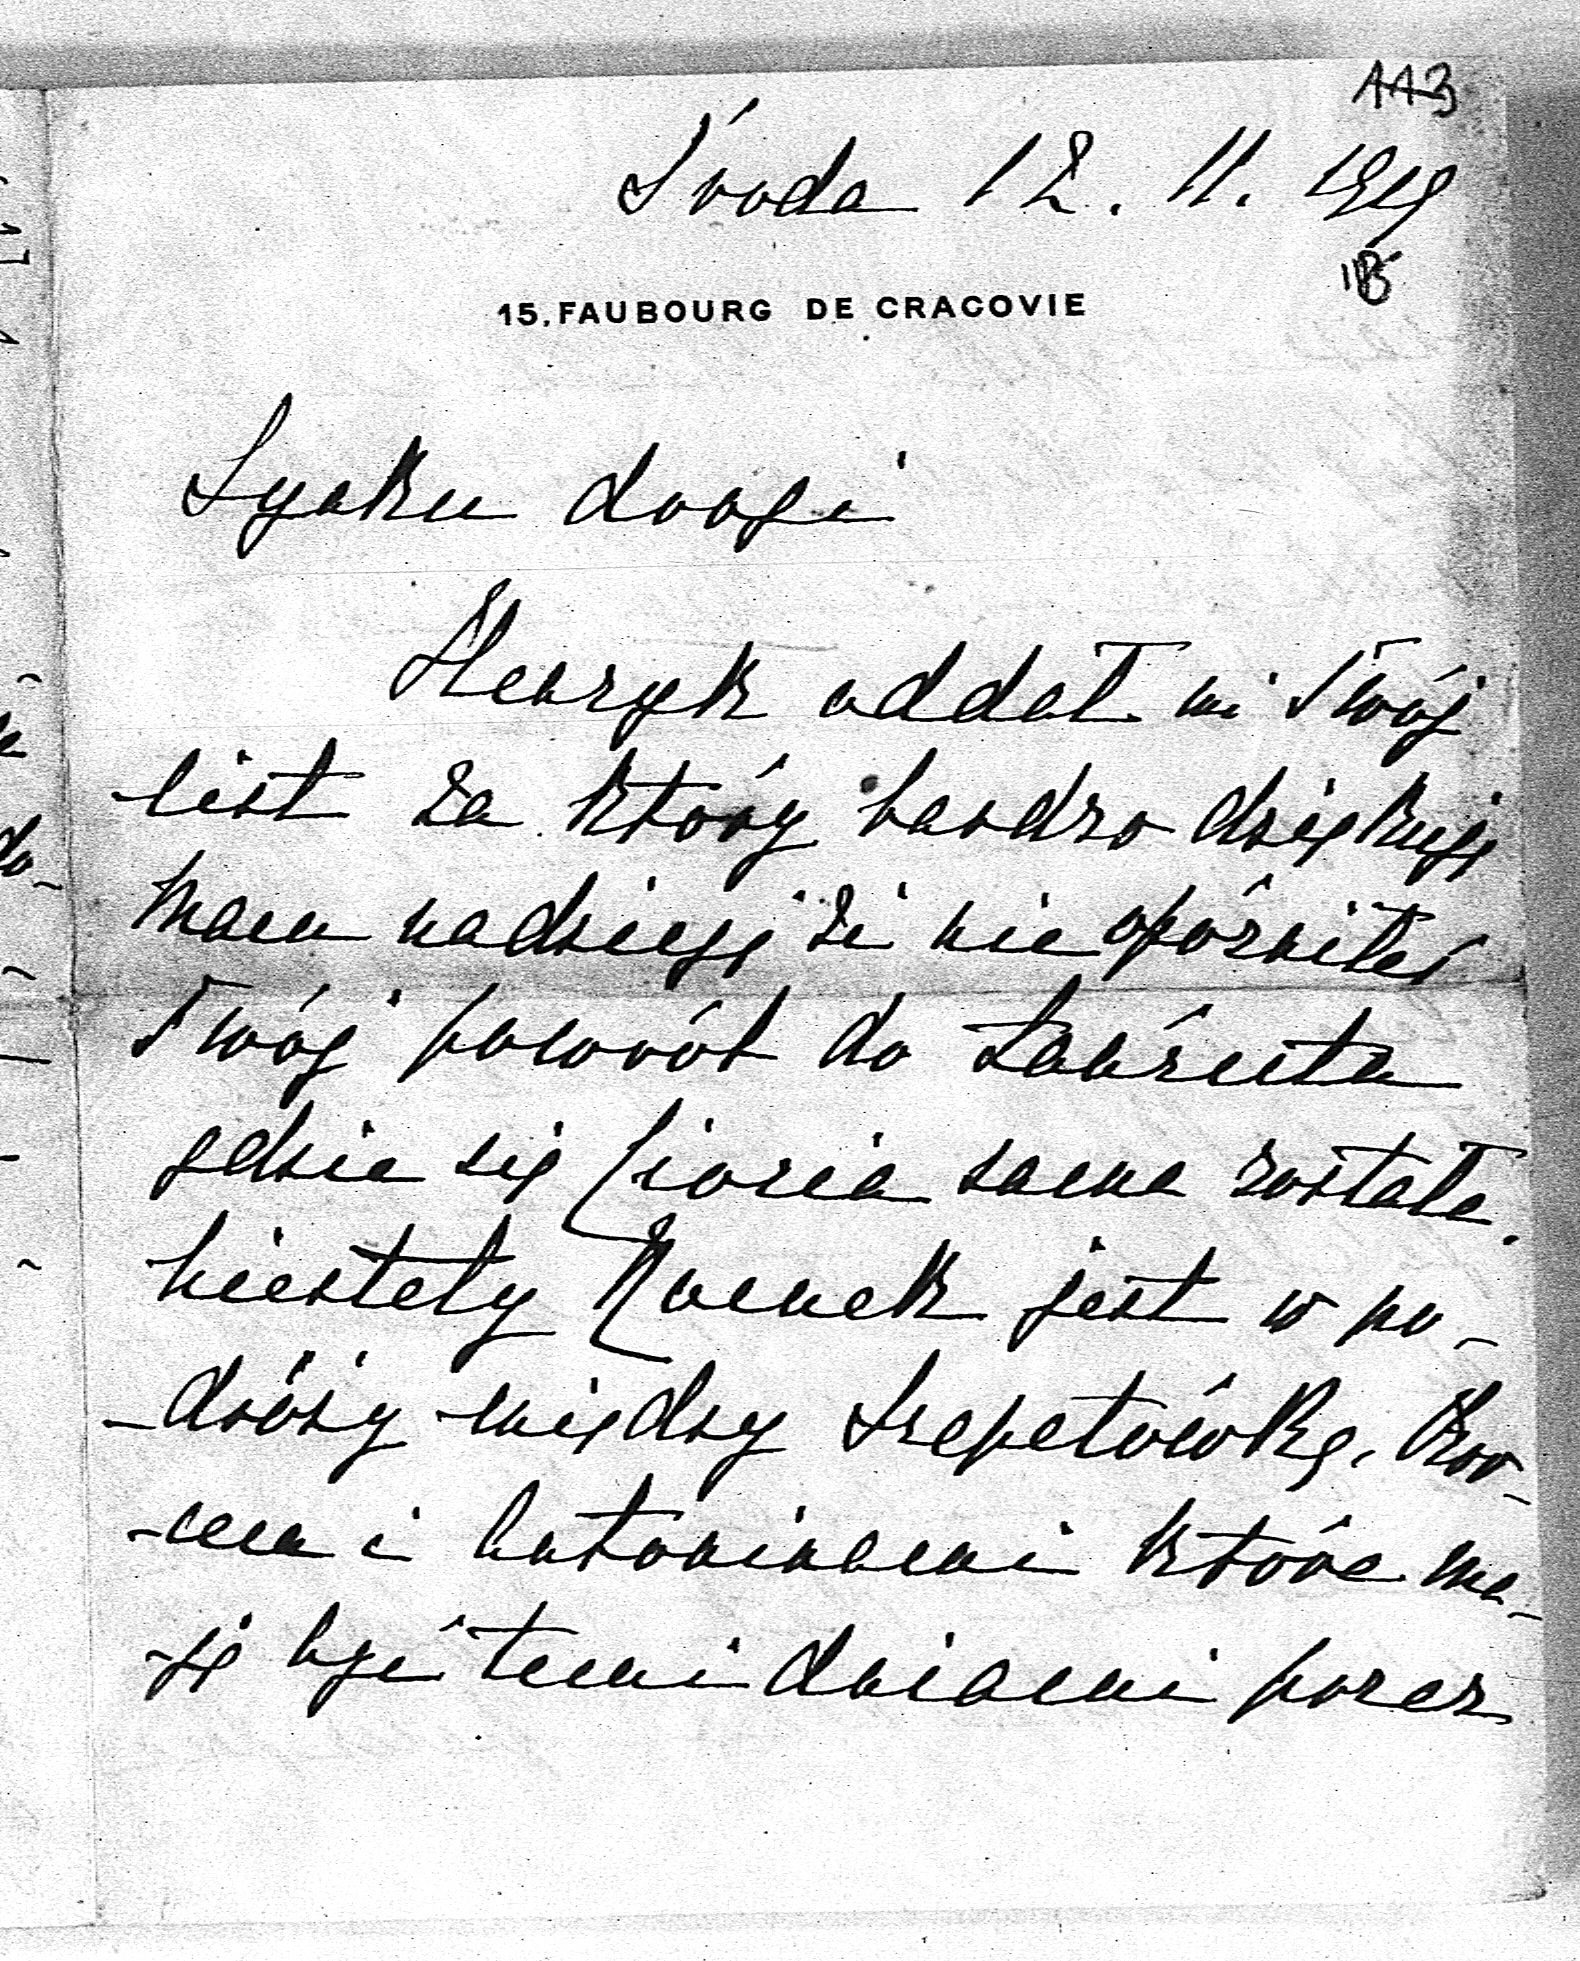 113
Środa 12. 11. 1919
115
15, FAUBOURG DE CRACOVIE
Synku drogi
Henryk oddał mi Twój
list za który bardzo dziękuję
Mam nadzieję że nie opóźniłeś
Twój powrót do Łańcuta
gdzie się sama została.
Niestety Romek jest w po-
-dróży między Szepetówką,
i Antoninami które ma-
-ją być temi dniami przez